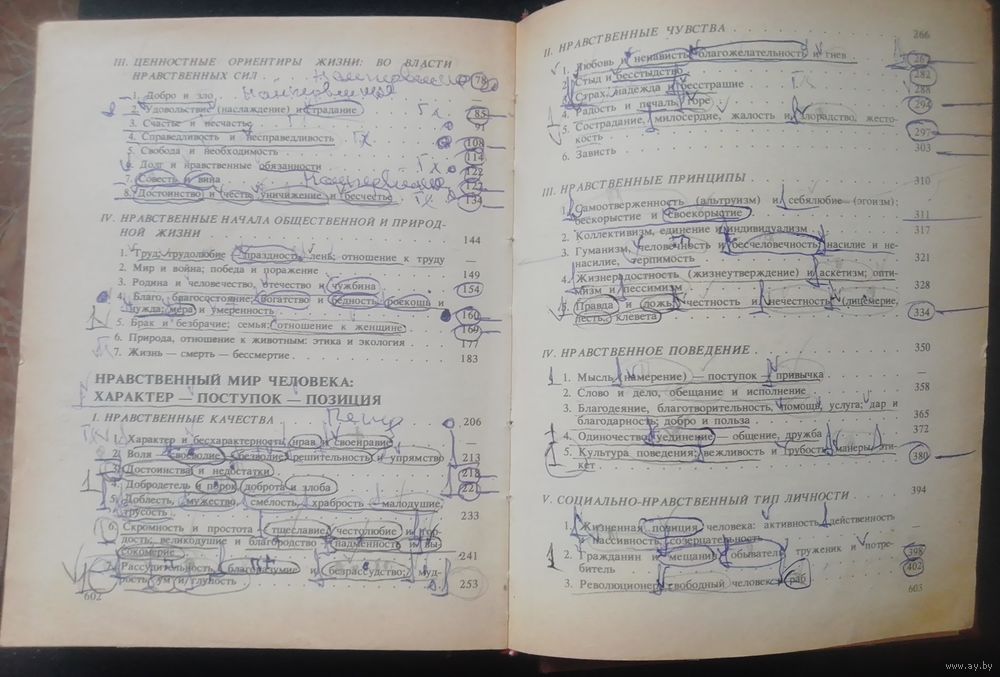 III. ЦЕННОСТНЫЕ ОРИЕНТИРЫ ЖИЗНИ: ВО ВЛАСТИ
НРАВСТВЕННЫХ СИЛ 78
1. Добро и зло —
2. Удовольствие (наслаждение) и страдание 85
3. Счастье и несчастье 91
4. Справедливость и несправедливость 108
5. Свобода и необходимость 114
6. Долг и нравственные обязанности 122
7. Совесть и вина
8. Достоинство и честь, унижение и бесчестье 134
IV. НРАВСТВЕННЫЕ НАЧАЛА ОБЩЕСТВЕННОЙ И ПРИРОД-
НОЙ ЖИЗНИ 144
1. Труд; трудолюбие — праздность, лень; отношение к труду —
2. Мир и война; победа и поражение 149
3. Родина и человечество, отечество и чужбина 154
4. Благо, благосостояние; богатство и бедность, роскошь и
нужда; мера и умеренность 160
5. Брак и безбрачие; семья; отношение к женщине 169
6. Природа, отношение к животным: этика и экология 177
7. Жизнь — смерть — бессмертие 183
НРАВСТВЕННЫЙ МИР ЧЕЛОВЕКА:
ХАРАКТЕР — ПОСТУПОК — ПОЗИЦИЯ
I. НРАВСТВЕННЫЕ КАЧЕСТВА 206
1. Характер и бесхарактерность, нрав и своенравие —
2. Воля — своеволие — безволие, решительность и упрямство 213
3. Достоинства и недостатки 218
4. Добродетель и порок, доброта и злоба 221
5. Доблесть, мужество, смелость, храбрость — малодушие,
трусость 233
6. Скромность и простота — тщеславие, честолюбие и гор-
дость; великодушие и благородство — надменность и вы-
сокомерие 241
7. Рассудительность, благоразумие и безрассудство; муд-
рость, ум и глупость 253
602
II. НРАВСТВЕННЫЕ ЧУВСТВА 266
1. Любовь и ненависть, благожелательность и гнев 267
2. Стыд и бесстыдство 282
3. Страх, надежда и бесстрашие 288
4. Радость и печаль, горе 294
5. Сострадание, милосердие, жалость и злорадство, жесто-
кость 297
6. Зависть 303
III. НРАВСТВЕННЫЕ ПРИНЦИПЫ 310
1. Самоотверженность (альтруизм) и себялюбие (эгоизм);
бескорыстие и своекорыстие 311
2. Коллективизм, единение и индивидуализм 317
3. Гуманизм, человечность и бесчеловечность; насилие и не-
насилие, терпимость 321
4. Жизнерадостность (жизнеутверждение) и аскетизм; опти-
мизм и пессимизм 328
5. Правда и ложь, честность и нечестность (лицемерие,
лесть, клевета) 334
IV. НРАВСТВЕННОЕ ПОВЕДЕНИЕ 350
1. Мысль (намерение) — поступок — привычка —
2. Слово и дело, обещание и исполнение 358
3. Благодеяние, благотворительность, помощь, услуга; дар и
благодарность; добро и польза 365
4. Одиночество, уединение — общение, дружба 372
5. Культура поведения; вежливость и грубость, манеры, эти-
кет 380
V. СОЦИАЛЬНО-НРАВСТВЕННЫЙ ТИП ЛИЧНОСТИ 394
1. Жизненная позиция человека: активность, действенность
— пассивность, созерцательность —
2. Гражданин и мещанин, обыватель, труженик и потре-
битель 398
3. Революционер, свободный человек — раб 402
603
www.ay.by